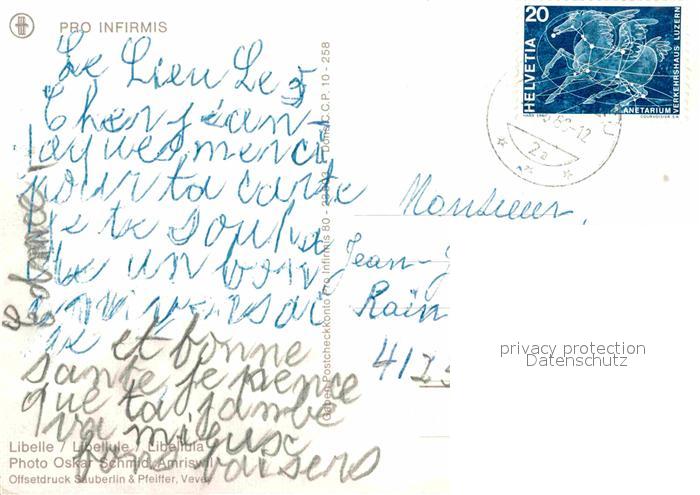 PRO INFIRMIS
Le Lieu Le 5
Cher Jean-
Jaques merci
pour ta carte
je te souhai
te un bon
anniversai
re et bonne
sante je pence
que ta jambe
va mieux
bons baisers
Libelle / Libellule / Libellula
Photo Oskar Schmid, Amriswil
Offsetdruck Säuberlin & Pfeiffer, Vevey
Gaben Postcheckkonto Pro Infirmis 80 - Dons C.C.P. 10 - 258
20
HELVETIA
PLANETARIUM
VERKEHRSHAUS LUZERN
HANS ERNI
COURVOISIER S A
-12
2a
Monsieur,
Jean-
Rain
412
privacy protection
Datenschutz